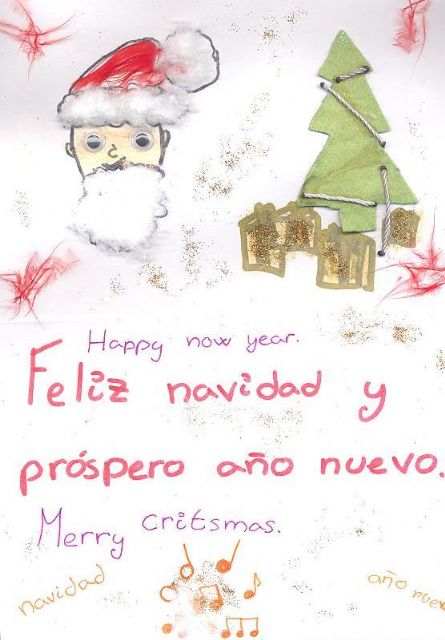 Happy now year.
Feliz navidad y
próspero año nuevo.
Merry critsmas.
navidad
año nuev